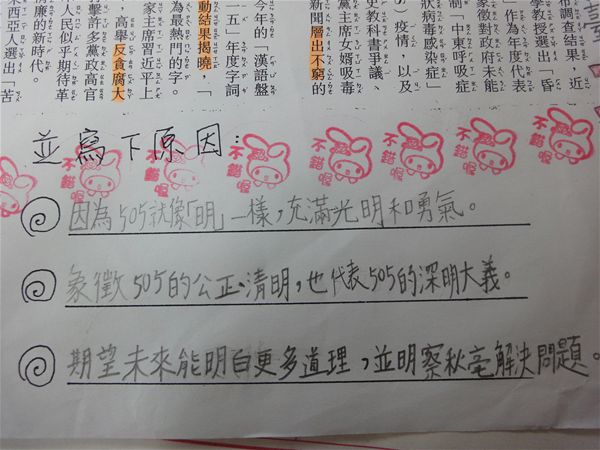 布調查結果，近
學教授選出「昏
」作為年度代表
象徵對政府未能
制「中東呼吸症
狀病毒感染症」
）疫情，以及
史教科書爭議、
黨主席女婿吸毒
新聞層出不窮的
今年的「漢語盤
一五」年度字詞
動結果揭曉，「
為最熱門的字。
家主席習近平上
，高舉反貪腐大
擊許多黨政高官
人民似乎期待革
清廉的新時代。
來西亞人選出「苦
並寫下原因：
不錯喔
不錯喔
不錯喔
不錯喔
不錯喔
不錯喔
不錯喔
因為505就像「明」一樣，充滿光明和勇氣。
象徵505的公正、清明，也代表505的深明大義。
期望未來能明白更多道理，並明察秋毫解決問題。